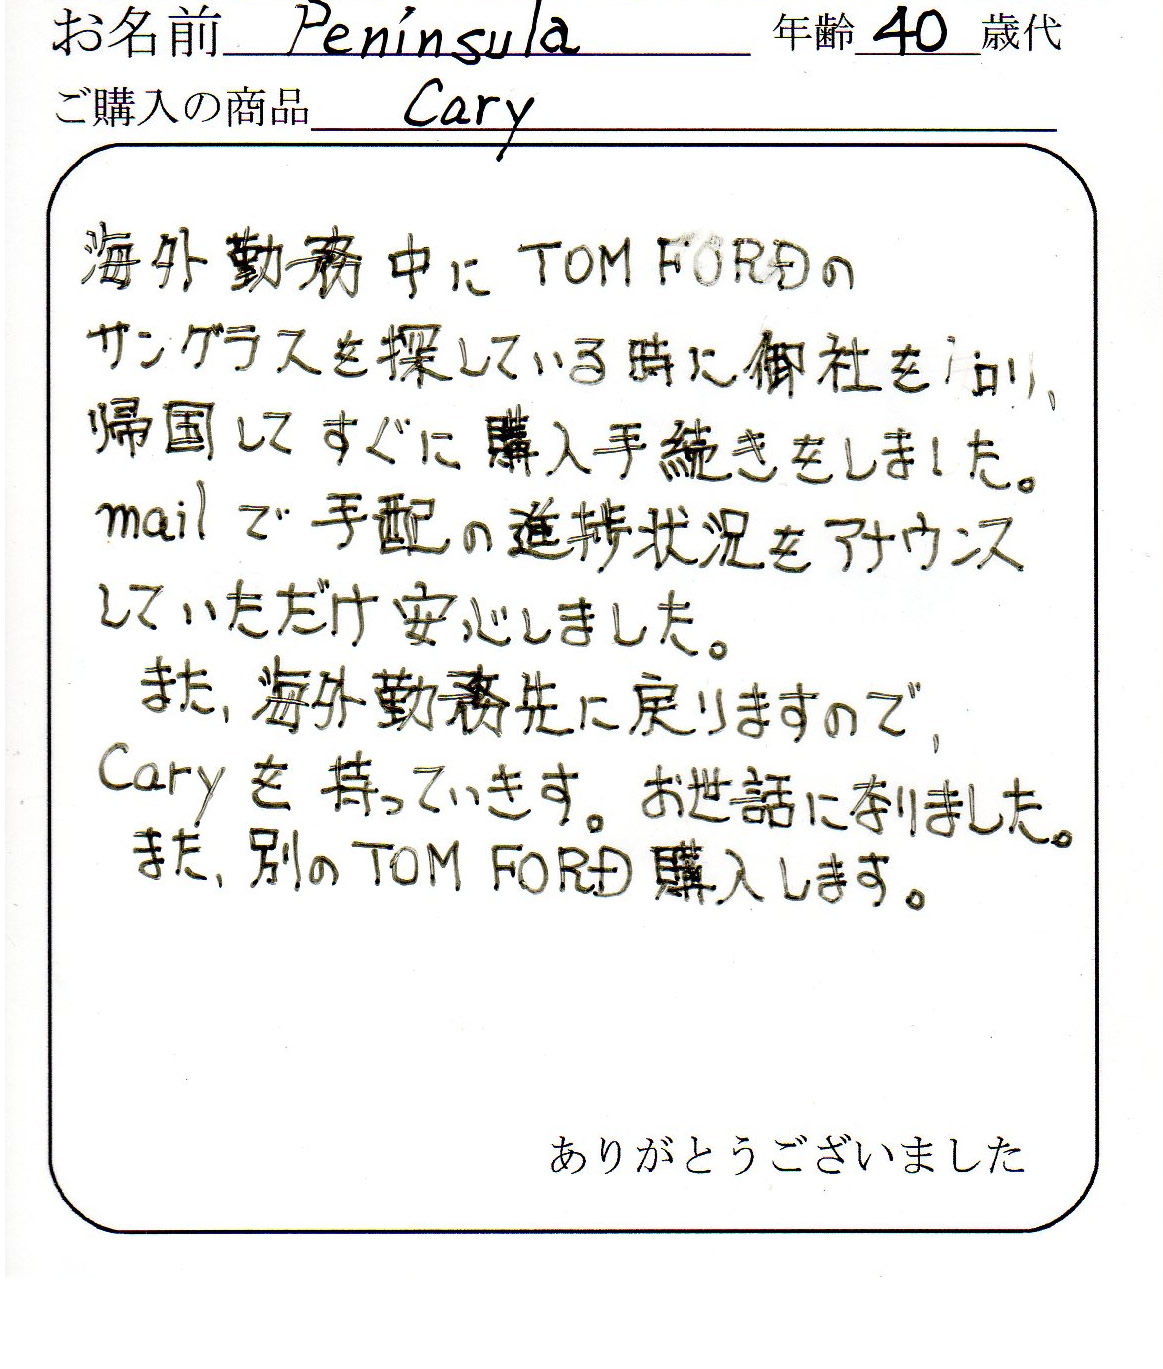 お名前 Peninsula 年齢 40 歳代
ご購入の商品 Cary
海外勤務中に TOM FORDの
サングラスを探している時に御社を知り、
帰国してすぐに購入手続きをしました。
mailで手配の進捗状況をアナウンス
していただけ安心しました。
また、海外勤務先に戻りますので、
Caryを持っていきます。お世話になりました。
また、別のTOM FORD購入します。
ありがとうございました